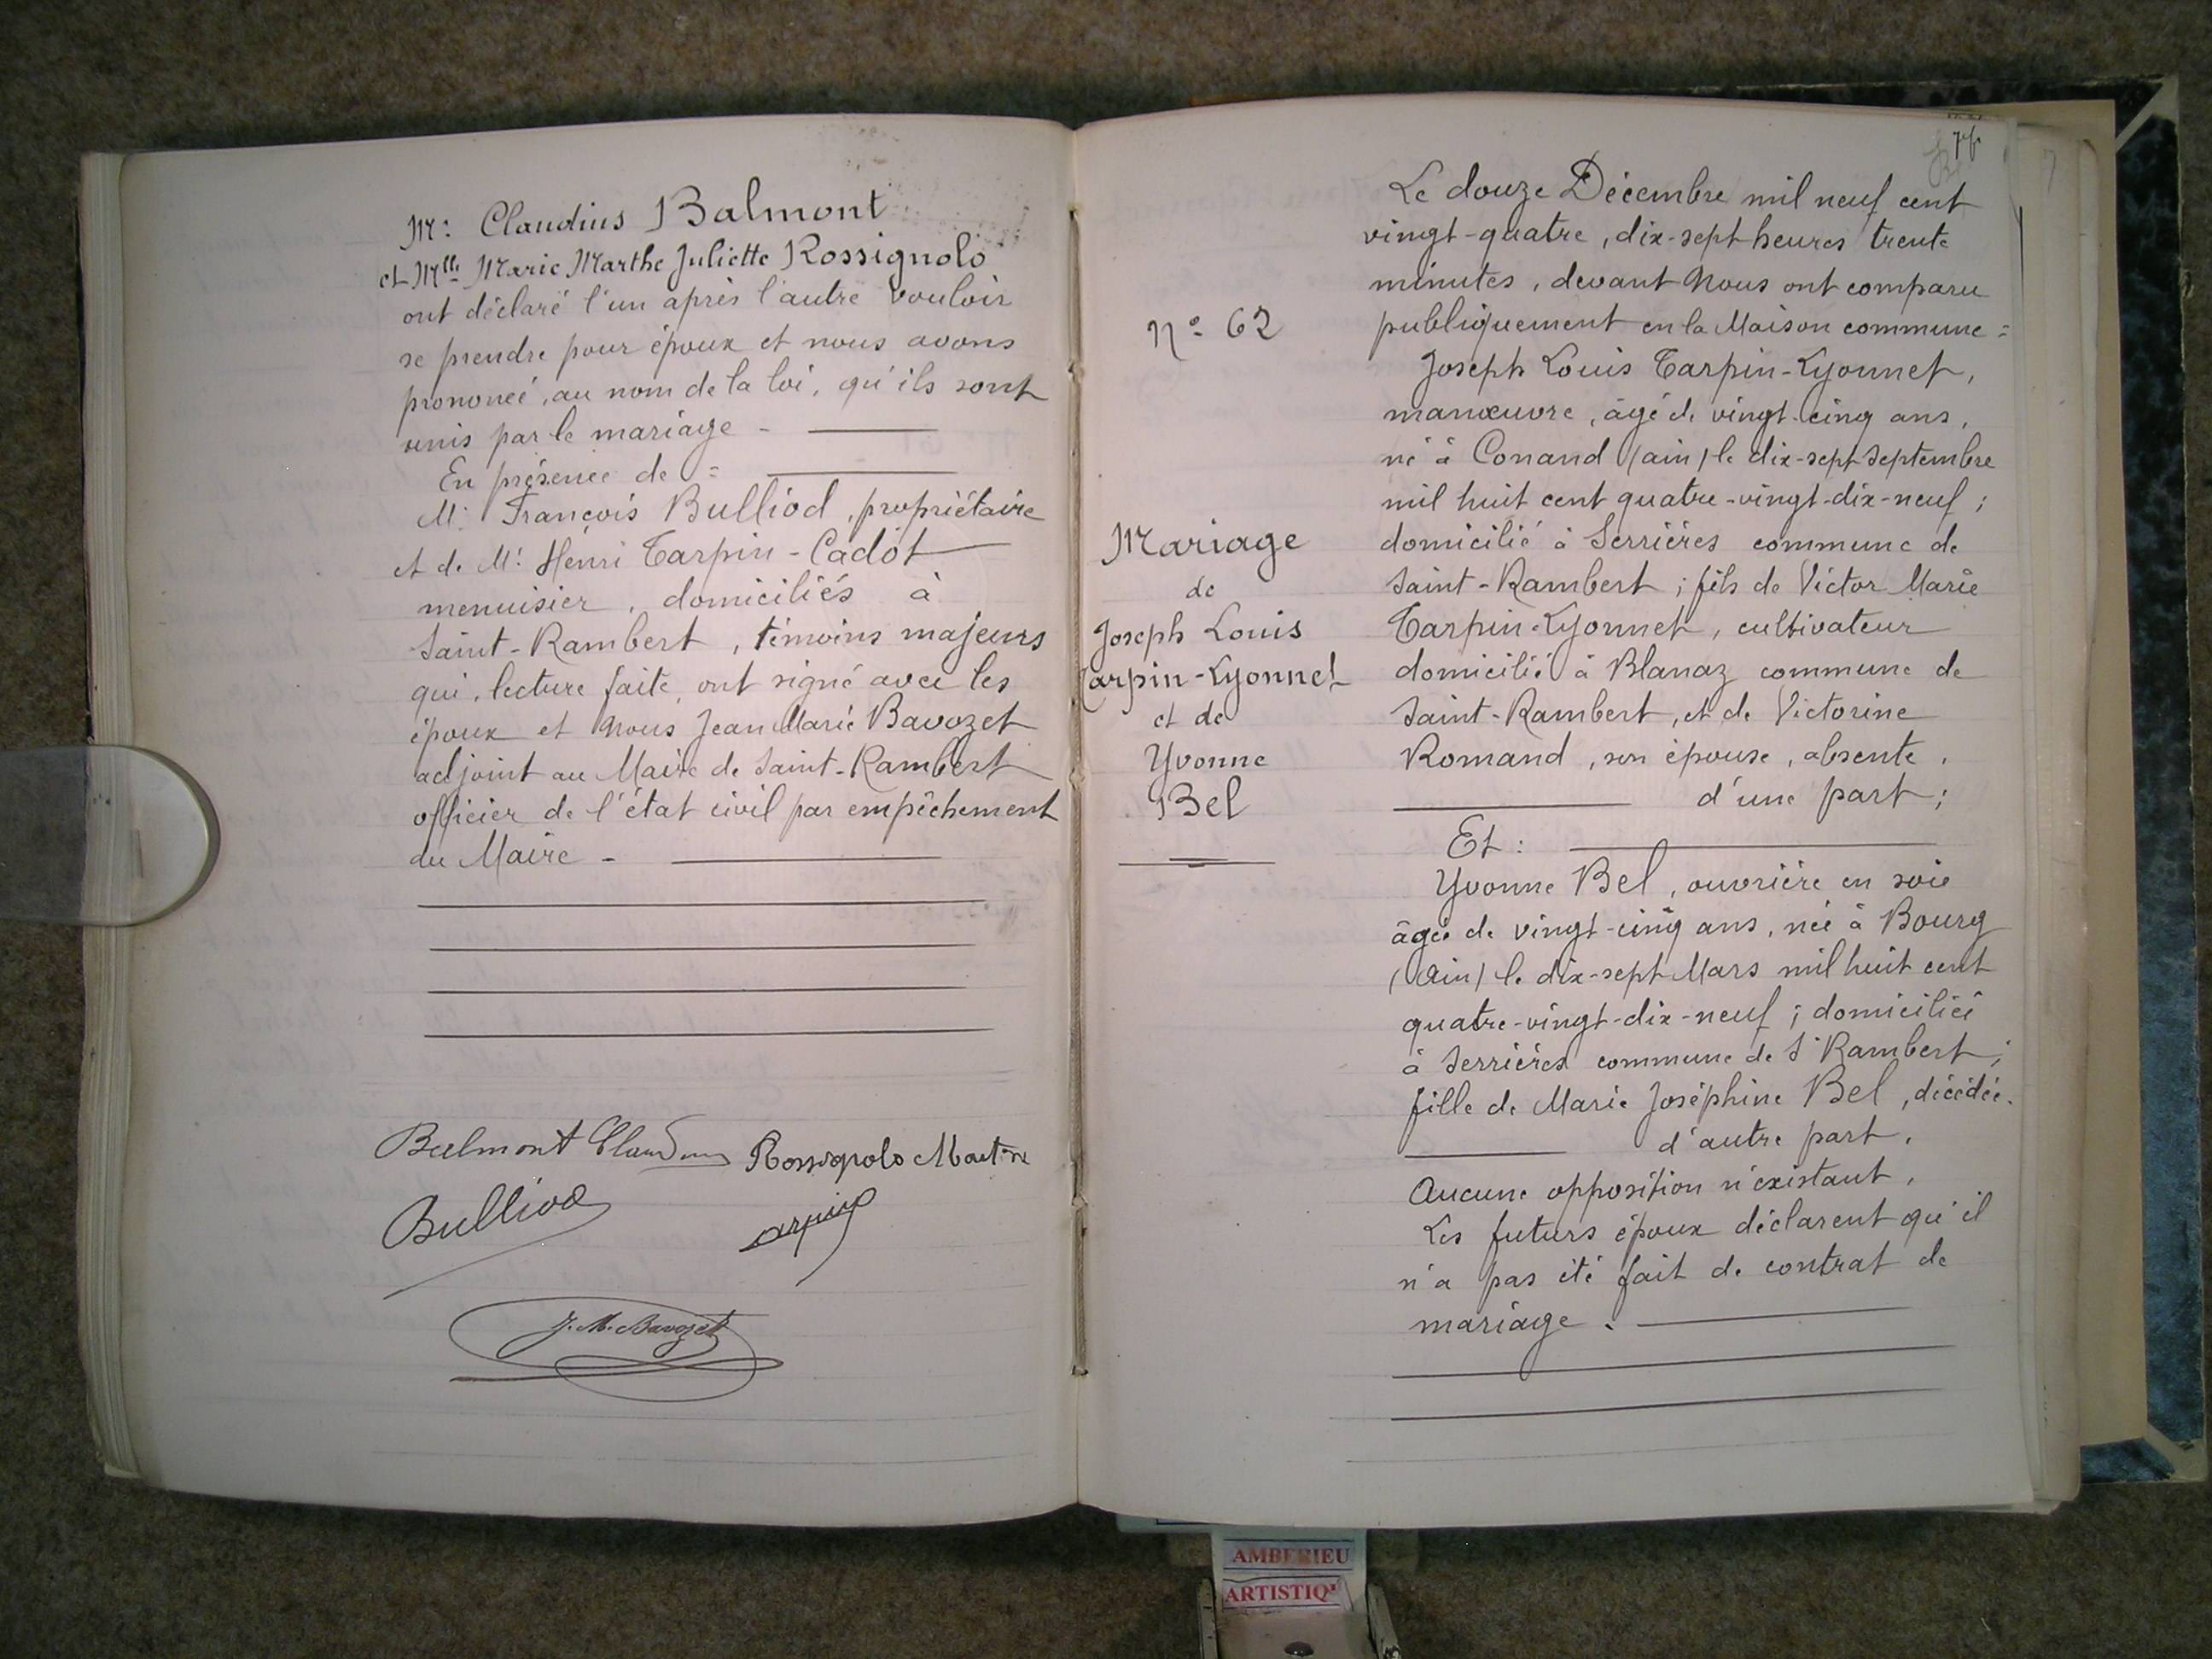 Mr. Claudius Balmont
et Mlle Marie Marthe Juliette Rossignolo
ont déclaré l'un après l'autre vouloir
se prendre pour époux et nous avons
prononcé, au nom de la loi, qu'ils sont
unis par le mariage -
En présence de :
Mr. François Bulliod, propriétaire
et de Mr. Henri Tarpin-Cadot
menuisier, domiciliés à
Saint-Rambert, témoins majeurs
qui, lecture faite, ont signé avec les
époux et Nous Jean Marie Bavozet
adjoint au Maire de Saint-Rambert
officier de l'état civil par empêchement
du Maire -
Balmont Claudius Rossignolo Marthe
Bulliod
J. M. Bavozet
N° 62
Mariage
de
Joseph Louis
Tarpin-Lyonnet
et de
Yvonne
Bel
Le douze Décembre mil neuf cent
vingt-quatre, dix-sept heures trente
minutes, devant Nous ont comparu
publiquement en la Maison commune :
Joseph Louis Tarpin-Lyonnet,
manœuvre, âgé de vingt-cinq ans,
né à Conand (ain) le dix-sept Septembre
mil huit cent quatre-vingt-dix-neuf ;
domicilié à Serrières commune de
Saint-Rambert ; fils de Victor Marie
Tarpin-Lyonnet, cultivateur
domicilié à Blanaz commune de
Saint-Rambert, et de Victorine
Romand, son épouse, absente,
d'une part ;
Et :
Yvonne Bel, ouvrière en soie
âgée de vingt-cinq ans, née à Bourg
(Ain) le dix-sept Mars mil huit cent
quatre-vingt-dix-neuf ; domiciliée
à Serrières commune de St Rambert ;
fille de Marie Joséphine Bel, décédée.
d'autre part.
Aucune opposition n'existant,
Les futurs époux déclarent qu'il
n'a pas été fait de contrat de
mariage.
AMBERIEU
ARTISTIQ'